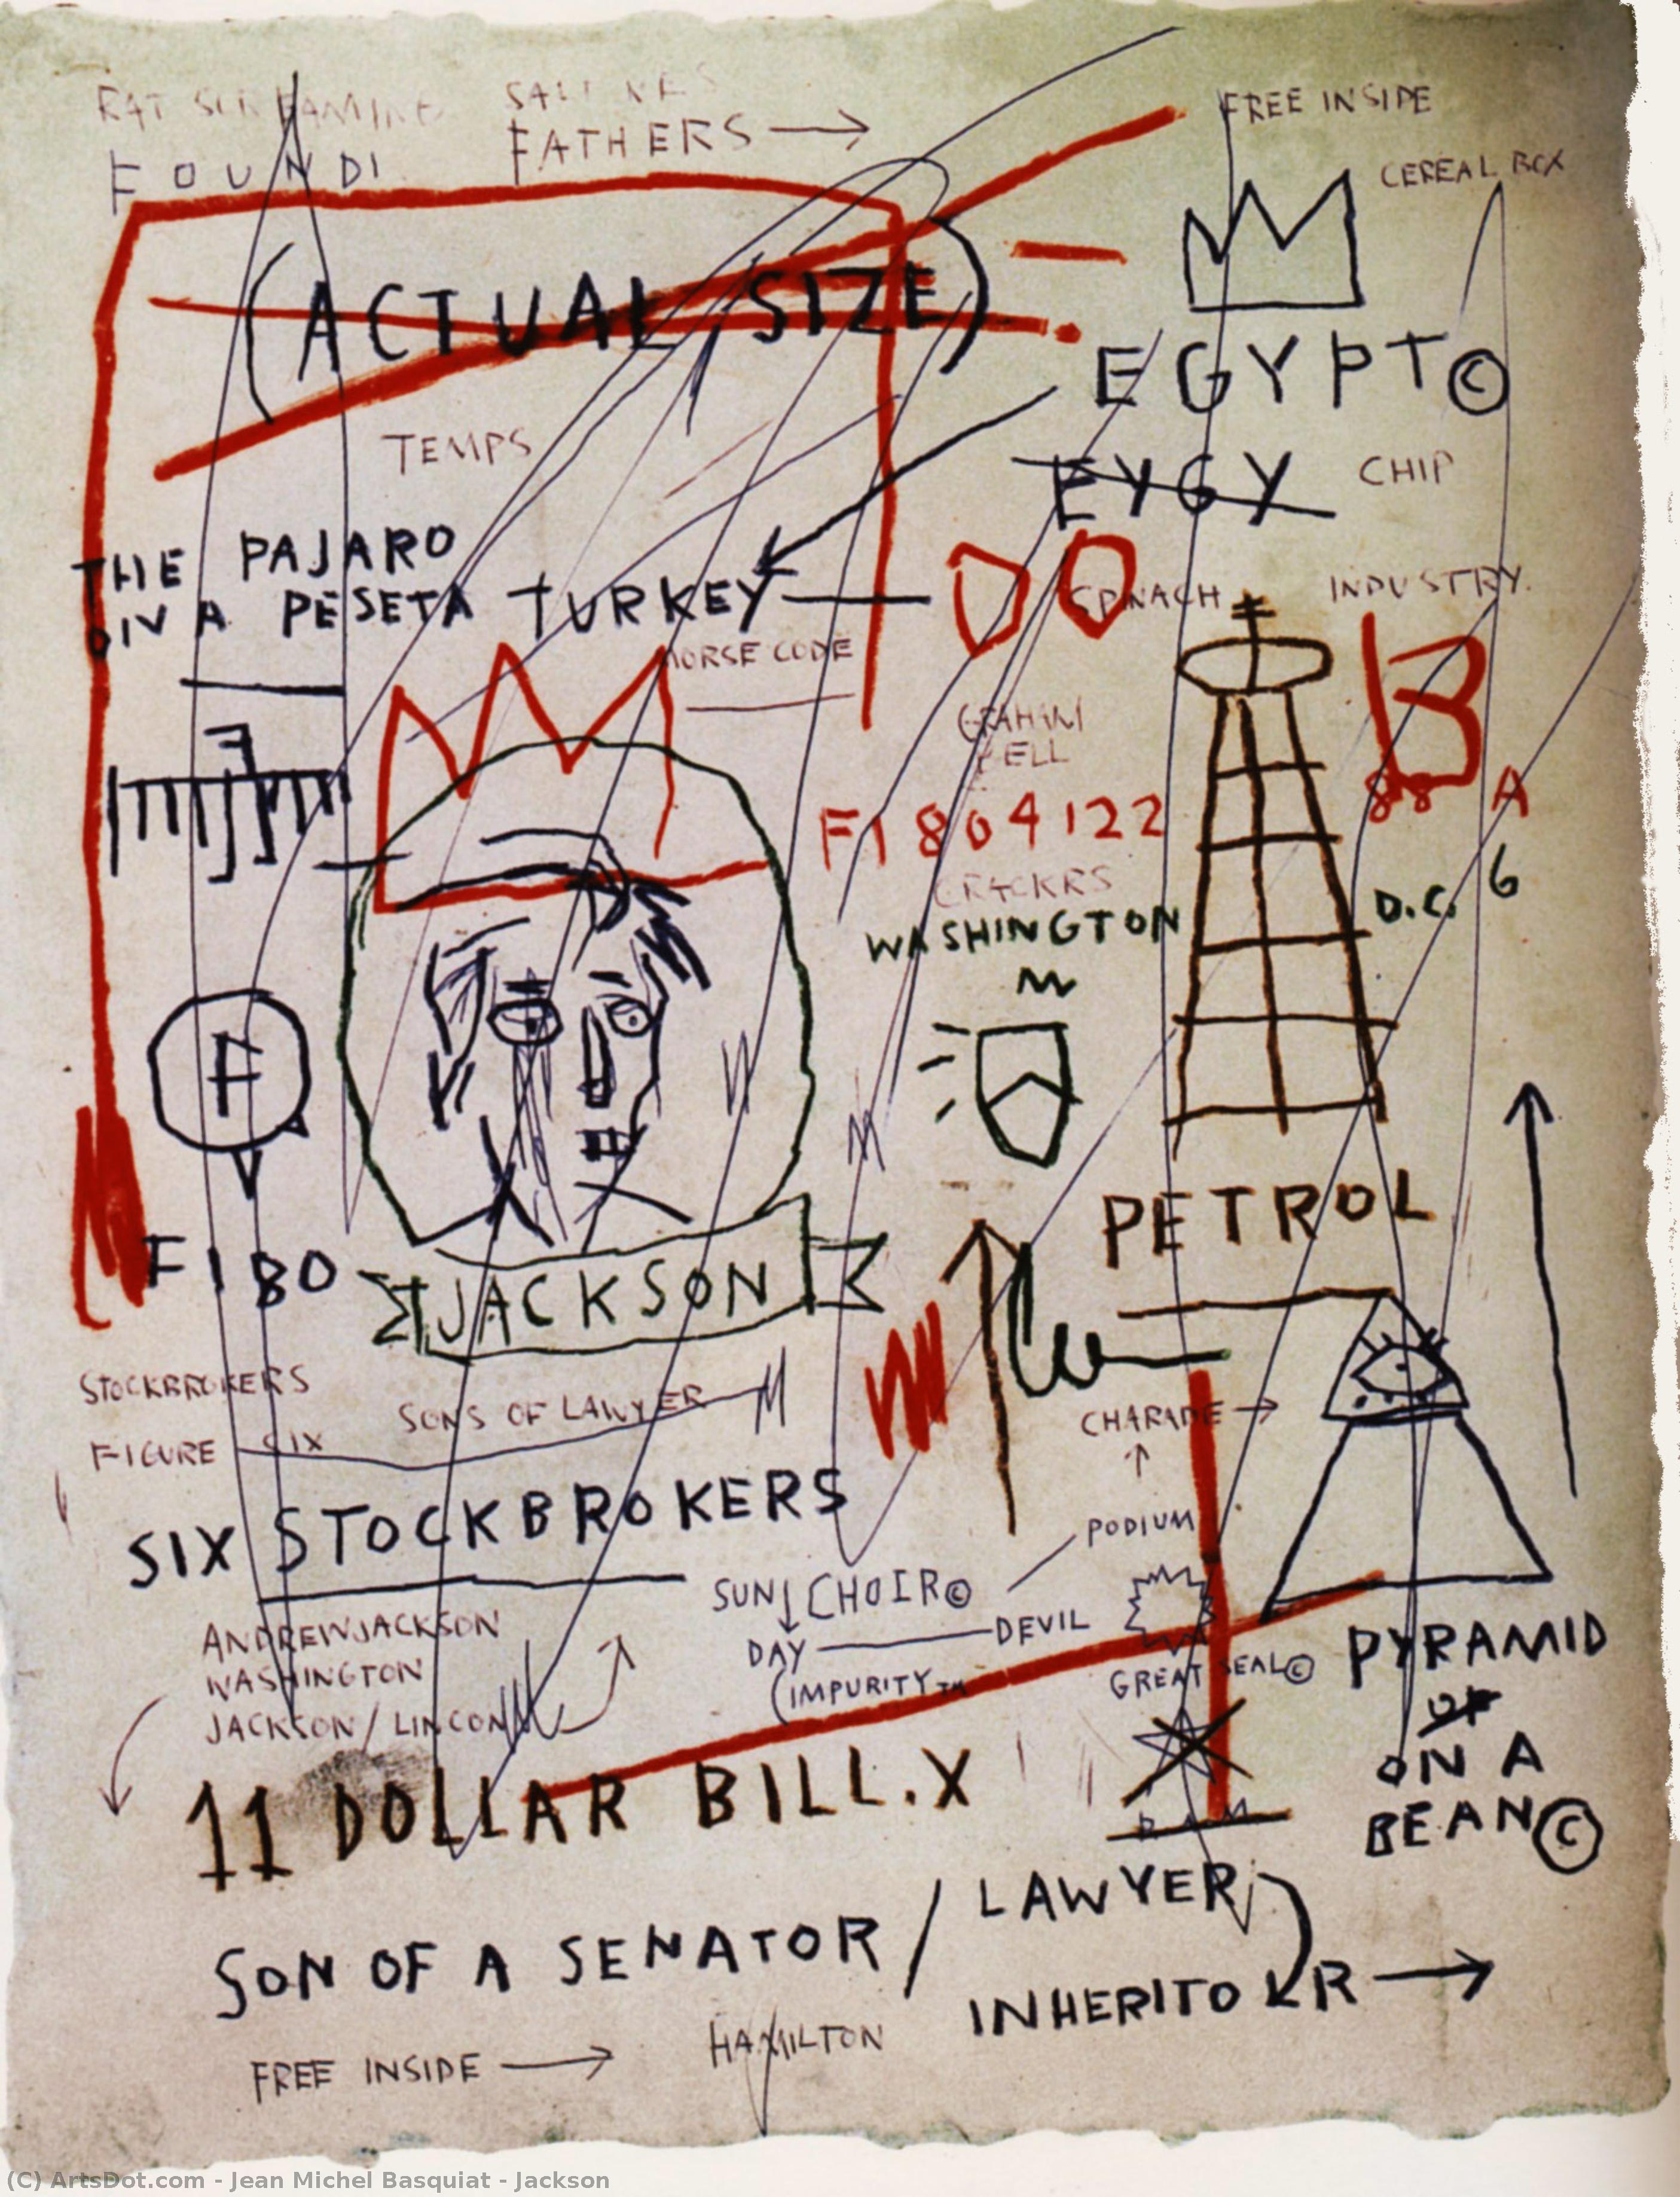 RAT SCREAMING
FOUNDI
FATHERS
FREE INSIDE
CEREAL BOX
(ACTUAL SIZE)
EGYPT©
TEMPS
EYGY
CHIP
THE PAJARO
ON A PESETA TURKEY
DO
SPINACH
INDUSTRY.
MORSE CODE
B
GRAHAM
BELL
F1804122
88 A
6
CRACKRS
WASHINGTON
D.C.
F
PETROL
FIBO
JACKSON
STOCKBROKERS
SONS OF LAWYER
FIGURE SIX
CHARADE
SIX STOCKBROKERS
PODIUM
SUN CHOIR©
DAY DEVIL
(IMPURITY™
GREAT SEAL©
ANDREWJACKSON
WASHINGTON
JACKSON/LINCON
PYRAMID
OF
ON A
BEAN©
11 DOLLAR BILL.X
SON OF A SENATOR / LAWYER
INHERITOR
FREE INSIDE
HAMILTON
(C) ArtsDot.com - Jean Michel Basquiat - Jackson